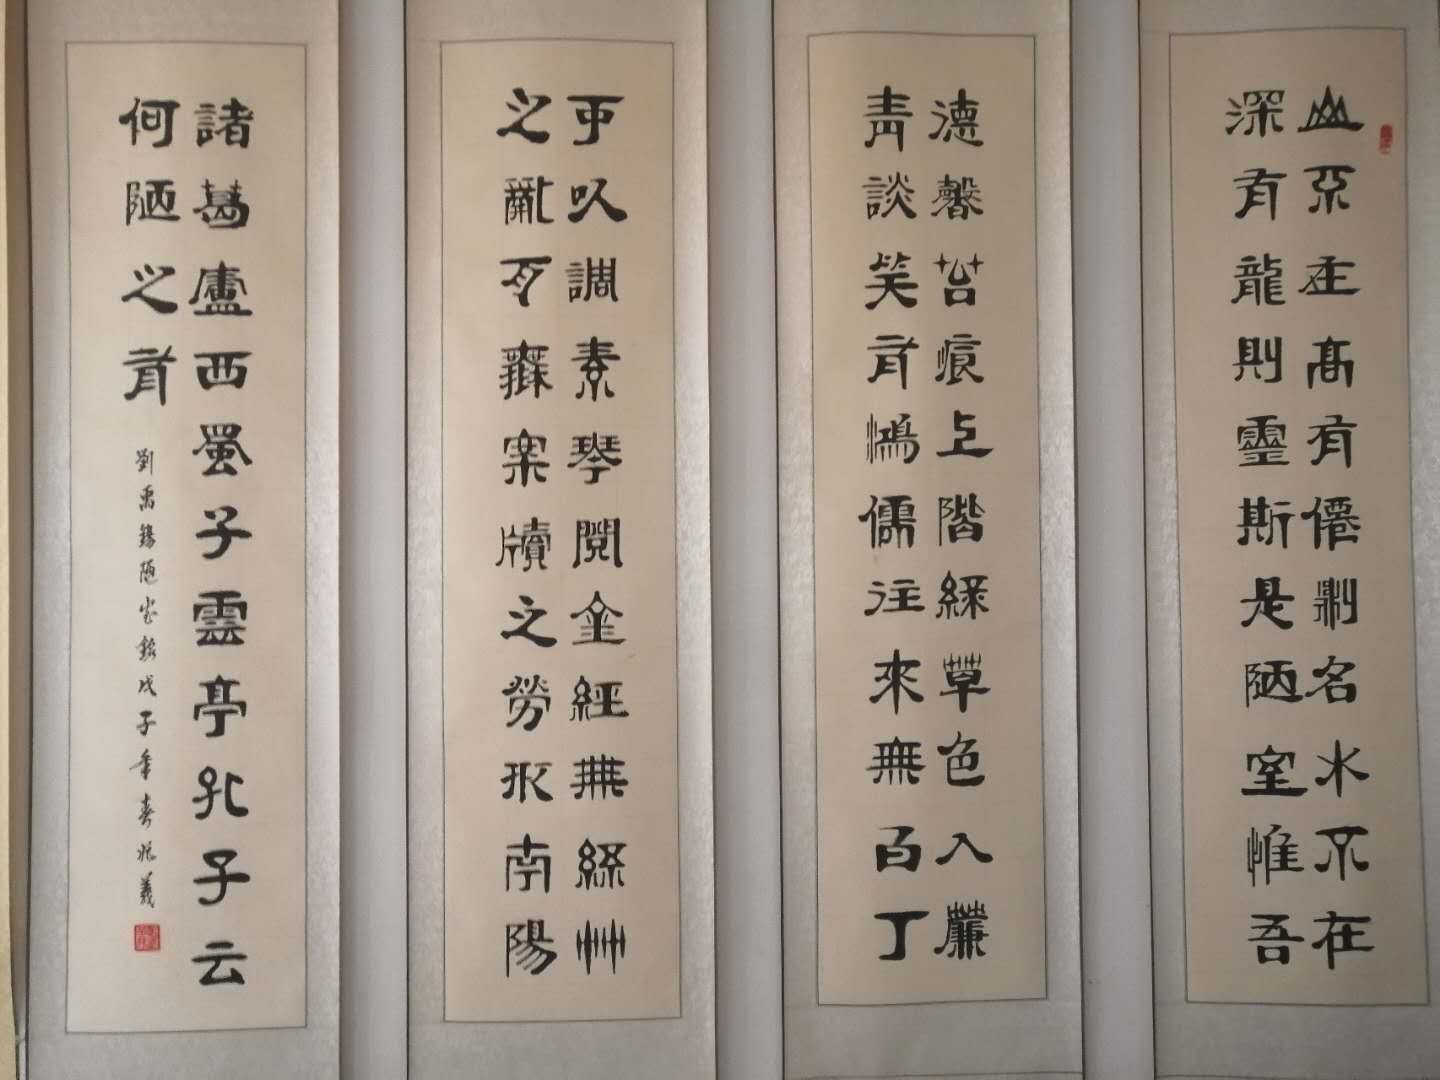 山不在高有僊則名水不在
深有龍則靈斯是陋室惟吾
德馨苔痕上階綠草色入簾
青談笑有鴻儒往來無白丁
可以調素琴閱金經無絲竹
之亂耳無案牘之勞形南陽
諸葛廬西蜀子雲亭孔子云
何陋之有
劉禹錫陋室銘戊子年春振義